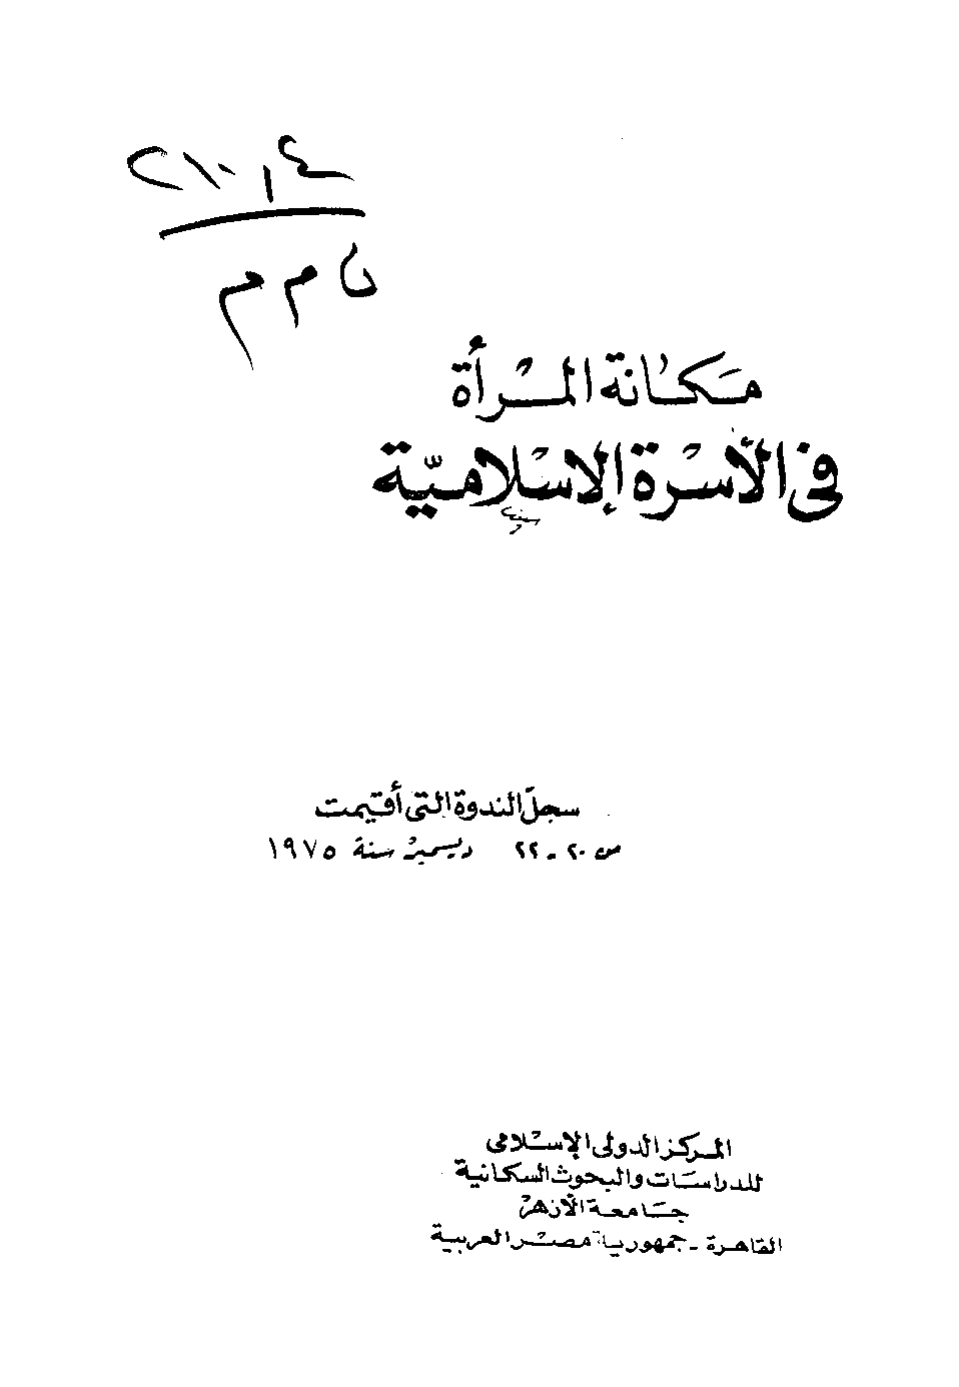 مكانة المرأة
فى الأسرة الإسلامية
سجل الندوة التى أقيمت
من ٢٠ - ٢٢ ديسمبر سنة ١٩٧٥
المركز الدولى الإسلامى
للدراسات والبحوث السكانية
جامعة الأزهر
القاهرة - جمهورية مصر العربية